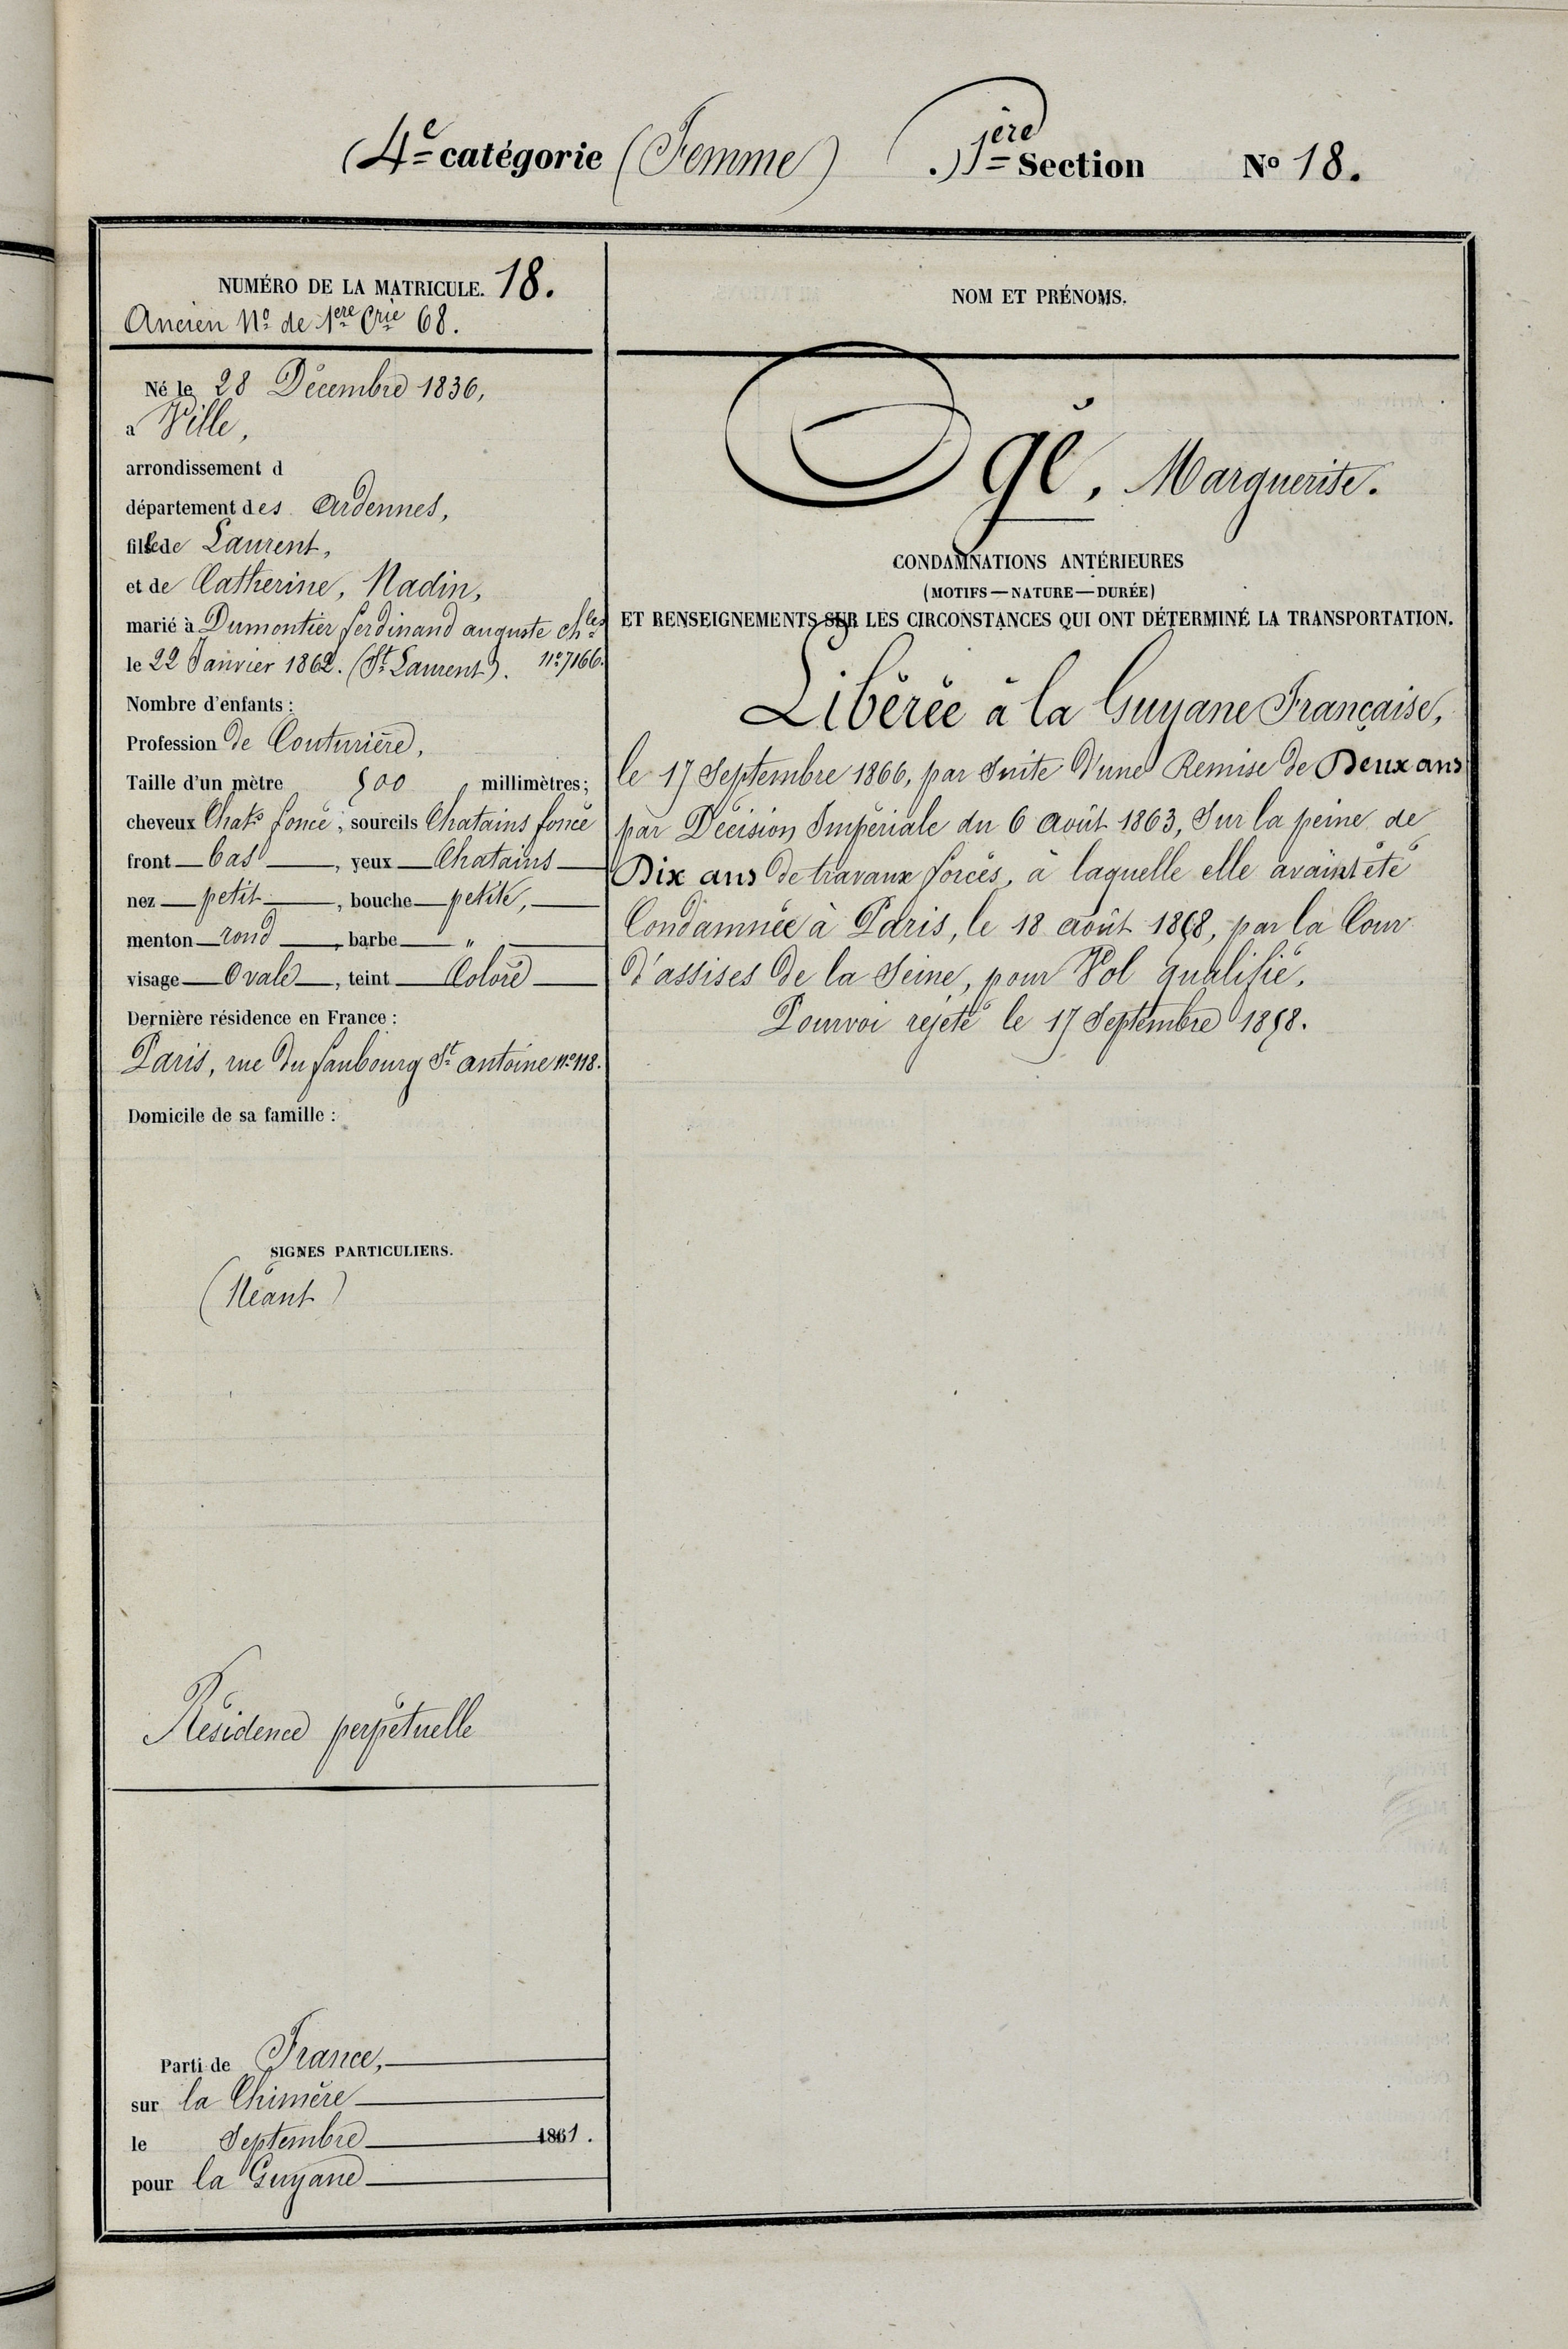 4e catégorie (Femme) 1ère Section No 18.
NUMÉRO DE LA MATRICULE. 18.
Ancien No de 1ere Crie 68.
Né le 28 Décembre 1836,
à Ville,
arrondissement d
département des Ardennes,
fille de Laurent,
et de Catherine, Nadin,
marié à Dumontier ferdinand auguste chles
le 22 Janvier 1862. (St Laurent). No 7166.
Nombre d'enfants :
Profession de Couturière,
Taille d'un mètre 500 millimètres;
cheveux Chats foncé, sourcils Chatains foncé
front bas, yeux Chatains
nez petit, bouche petite,
menton rond, barbe "
visage Ovale, teint Coloré
Dernière résidence en France :
Paris, rue du faubourg St antoine No 118.
Domicile de sa famille :
SIGNES PARTICULIERS.
(Néant)
Résidence perpétuelle
Parti de France,
sur la Chimère
le Septembre 1861.
pour la Guyane
NOM ET PRÉNOMS.
Ogé, Marguerite.
CONDAMNATIONS ANTÉRIEURES
(MOTIFS — NATURE — DURÉE)
ET RENSEIGNEMENTS SUR LES CIRCONSTANCES QUI ONT DÉTERMINÉ LA TRANSPORTATION.
Libérée à la Guyane Française,
le 17 Septembre 1866, par Suite d'une Remise de Deux ans
par Décision Impériale du 6 août 1863, Sur la peine de
Dix ans de travaux forcés, à laquelle elle avait été
Condamnée à Paris, le 18 août 1858, par la Cour
d'assises de la Seine, pour Vol qualifié.
Pourvoi rejeté le 17 Septembre 1858.